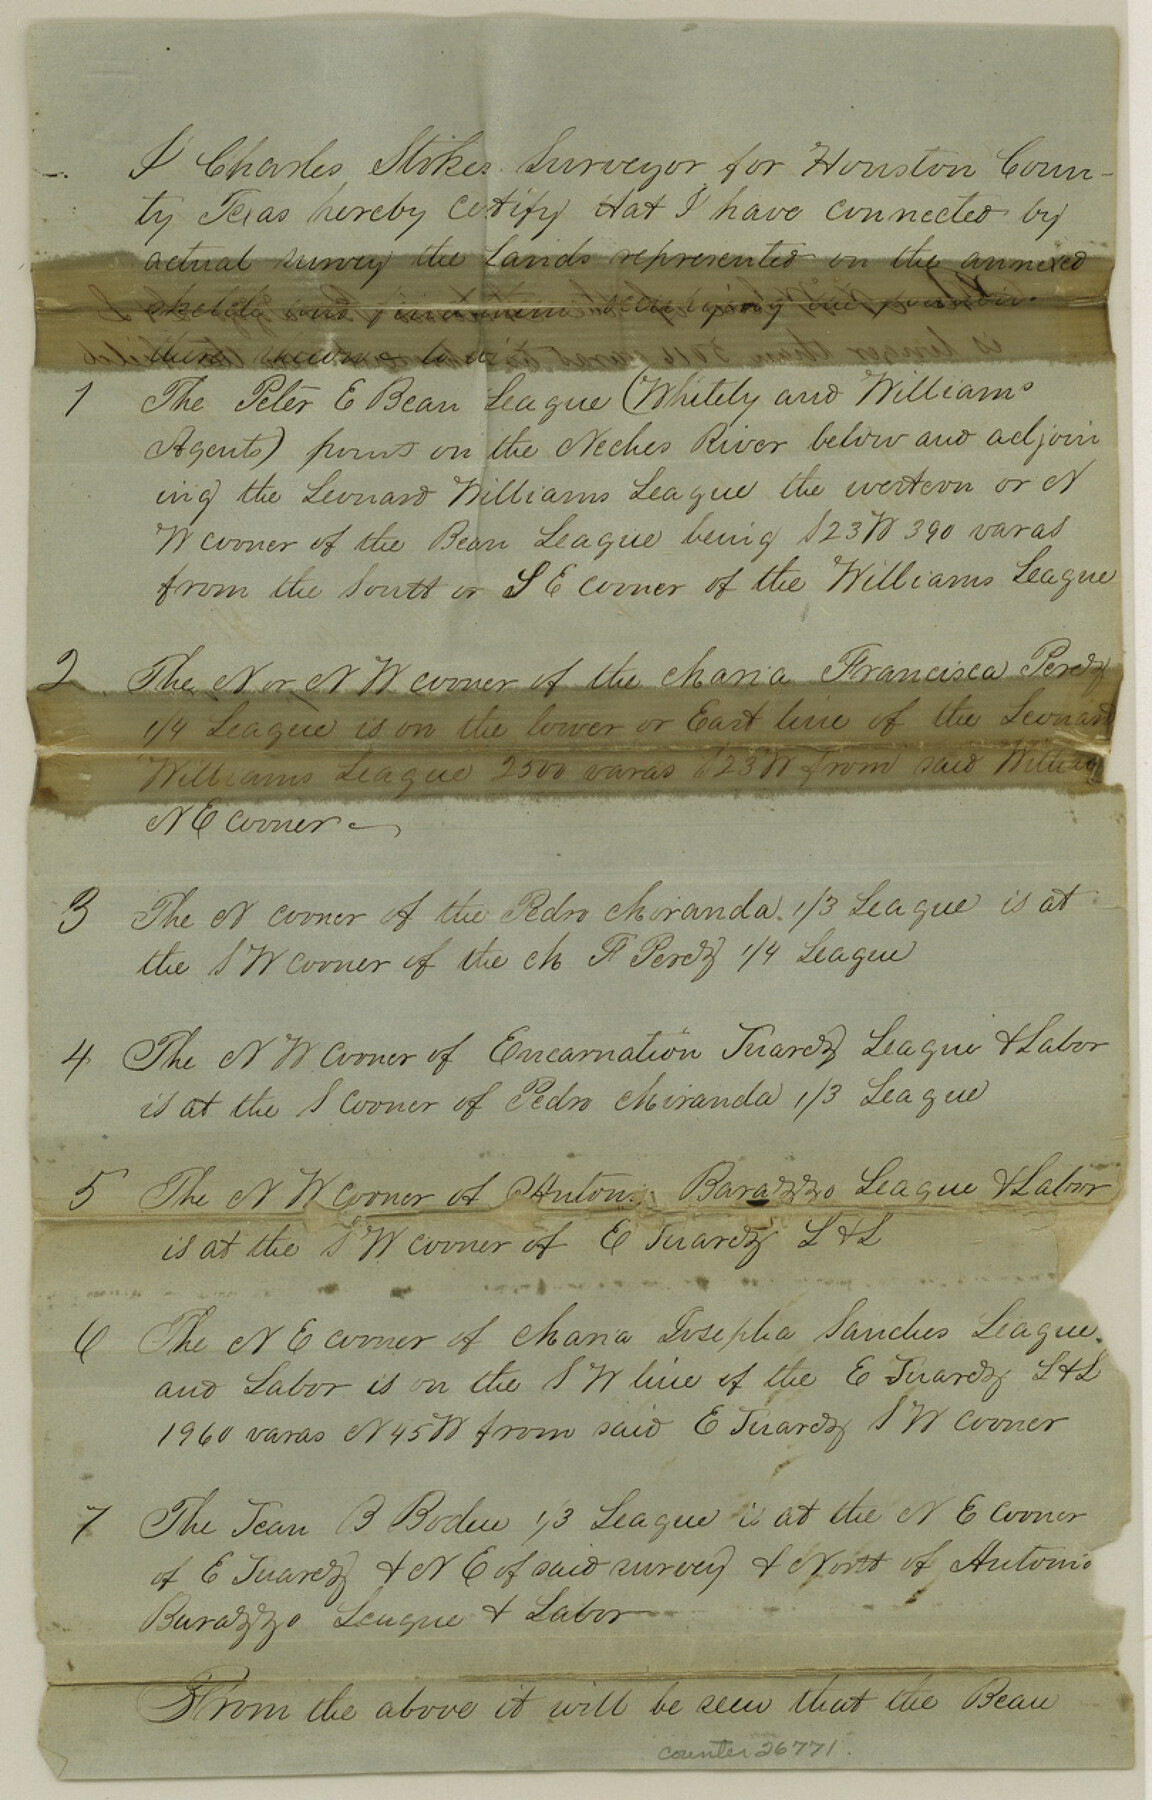 I Charles Stokes Surveyor for Houston Coun-
ty Texas hereby certify that I have connected by
actual survey the Lands represented on the annexed
sketch and find them occupying the position
to wit
1 The Peter E Bean League (Whitely and Williams
Agents) fronts on the Neches River below and adjoin
ing the Leonard Williams League the western or N
W corner of the Bean League being S23W 390 varas
from the South or S E corner of the Williams League
2 The N or N W corner of the Maria Francisca Perez
1/4 League is on the lower or East line of the Leonard
Williams League 2500 varas S23W from said Williams
N E corner
3 The N corner of the Pedro Miranda 1/3 League is at
the S W corner of the M F Perez 1/4 League
4 The N W corner of Encarnation Juarez League & Labor
is at the S corner of Pedro Miranda 1/3 League
5 The N W corner of Antonio League & Labor
is at the S W corner of E Juarez L & L
6 The N E corner of Maria Josepha Sanches League
and Labor is on the S W line of the E Juarez L & L
1960 varas N45W from said E Juarez S W corner
7 The Jean B Bodue 1/3 League is at the N E corner
of E Juarez & N E of said survey & North of Antonio
League & Labor
From the above it will be seen that the Bean
counter 26771.